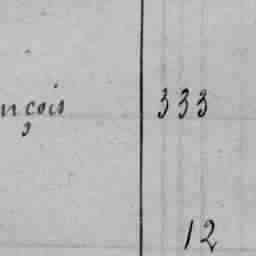 nçois 333
12